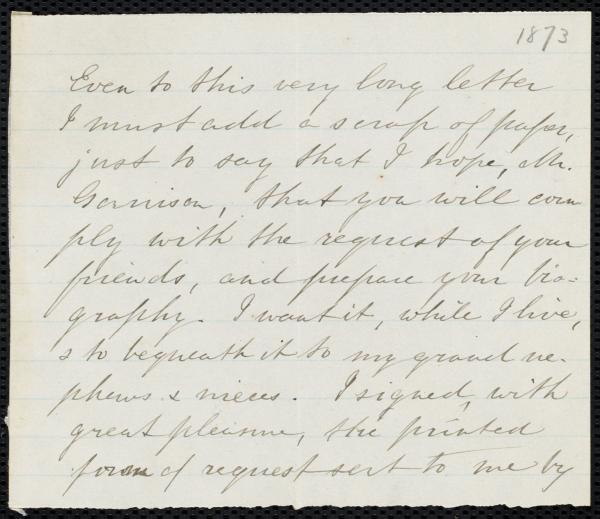 1873
Even to this very long letter
I must add a scrap of paper,
just to say that I hope, Mr.
Garrison, that you will com
ply with the request of your
friends, and prepare your bio=
graphy. I want it, while I live,
& to bequeath it to my grand ne-
phews & nieces. I signed, with
great pleasure, the printed
form of request sent to me by